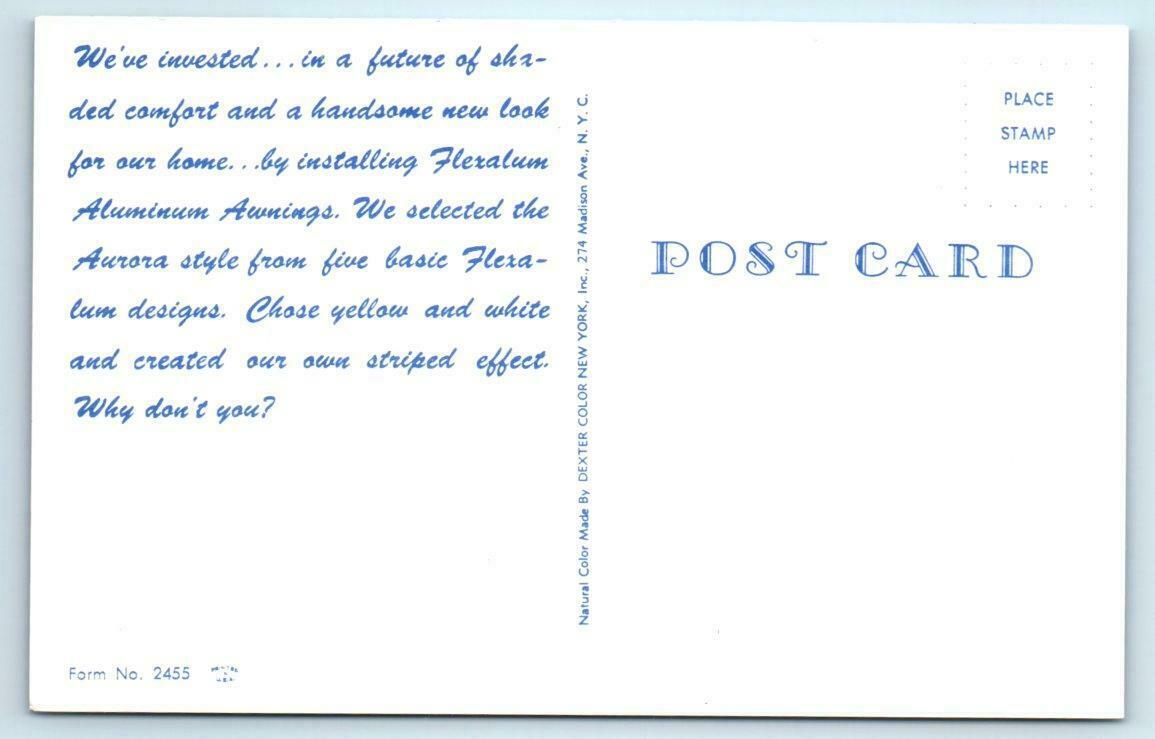 We've invested...in a future of sha-
ded comfort and a handsome new look
for our home...by installing Flexalum
Aluminum Awnings. We selected the
Aurora style from five basic Flexa-
lum designs. Chose yellow and white
and created our own striped effect.
Why don't you?
Form No. 2455
PRINTED
U.S.A.
Natural Color Made By DEXTER COLOR NEW YORK, Inc., 274 Madison Ave., N. Y. C.
PLACE
STAMP
HERE
POST CARD